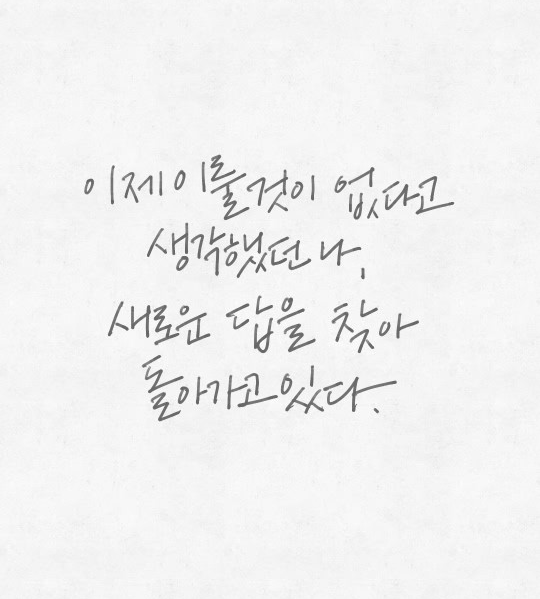 이제 이룰것이 없다고
생각했던 나,
새로운 답을 찾아
돌아가고있다.